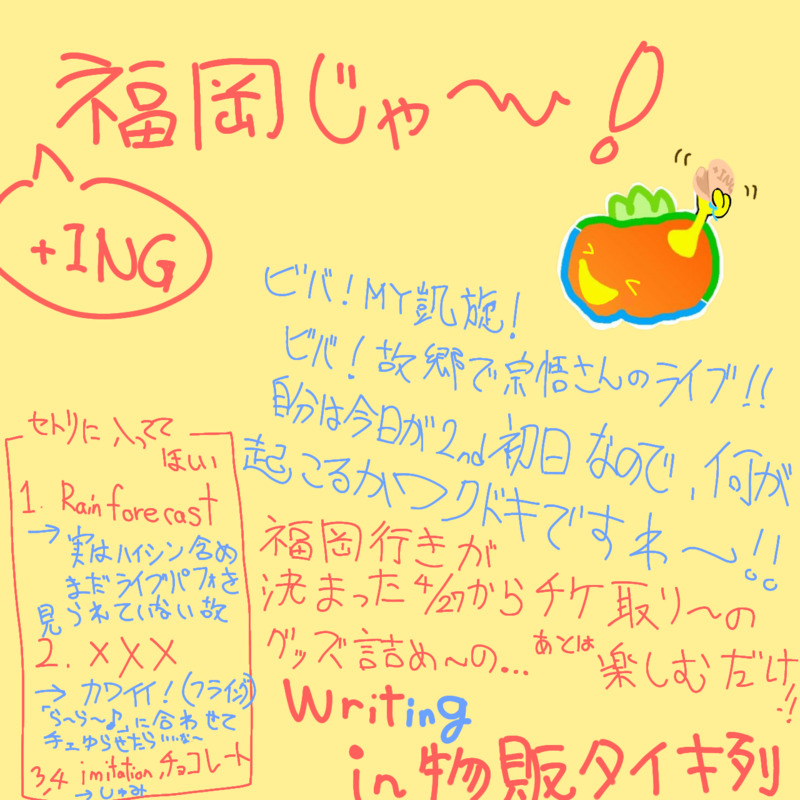 福岡じゃ〜!
+ING
+ING
ビバ!MY凱旋!
ビバ!故郷で宗悟さんのライブ!!
自分は今日が2nd初日なので、何が
起こるかワクドキですわ〜!!
福岡行きが
決まった4/27からチケ取り〜の
グッズ詰め〜の...あとは楽しむだけ!!
Writing
in物販タイキ列
セトリに入ってて
ほしい
1. Rain forecast
→実はハイシン含め
まだライブパフォを
見られていない故
2. XXX
→カワイイ!(フライング)
「ら〜ら〜♪」に合わせて
チェゆらせたらいいな〜
3,4 imitation,チョコレート
→しゅみ